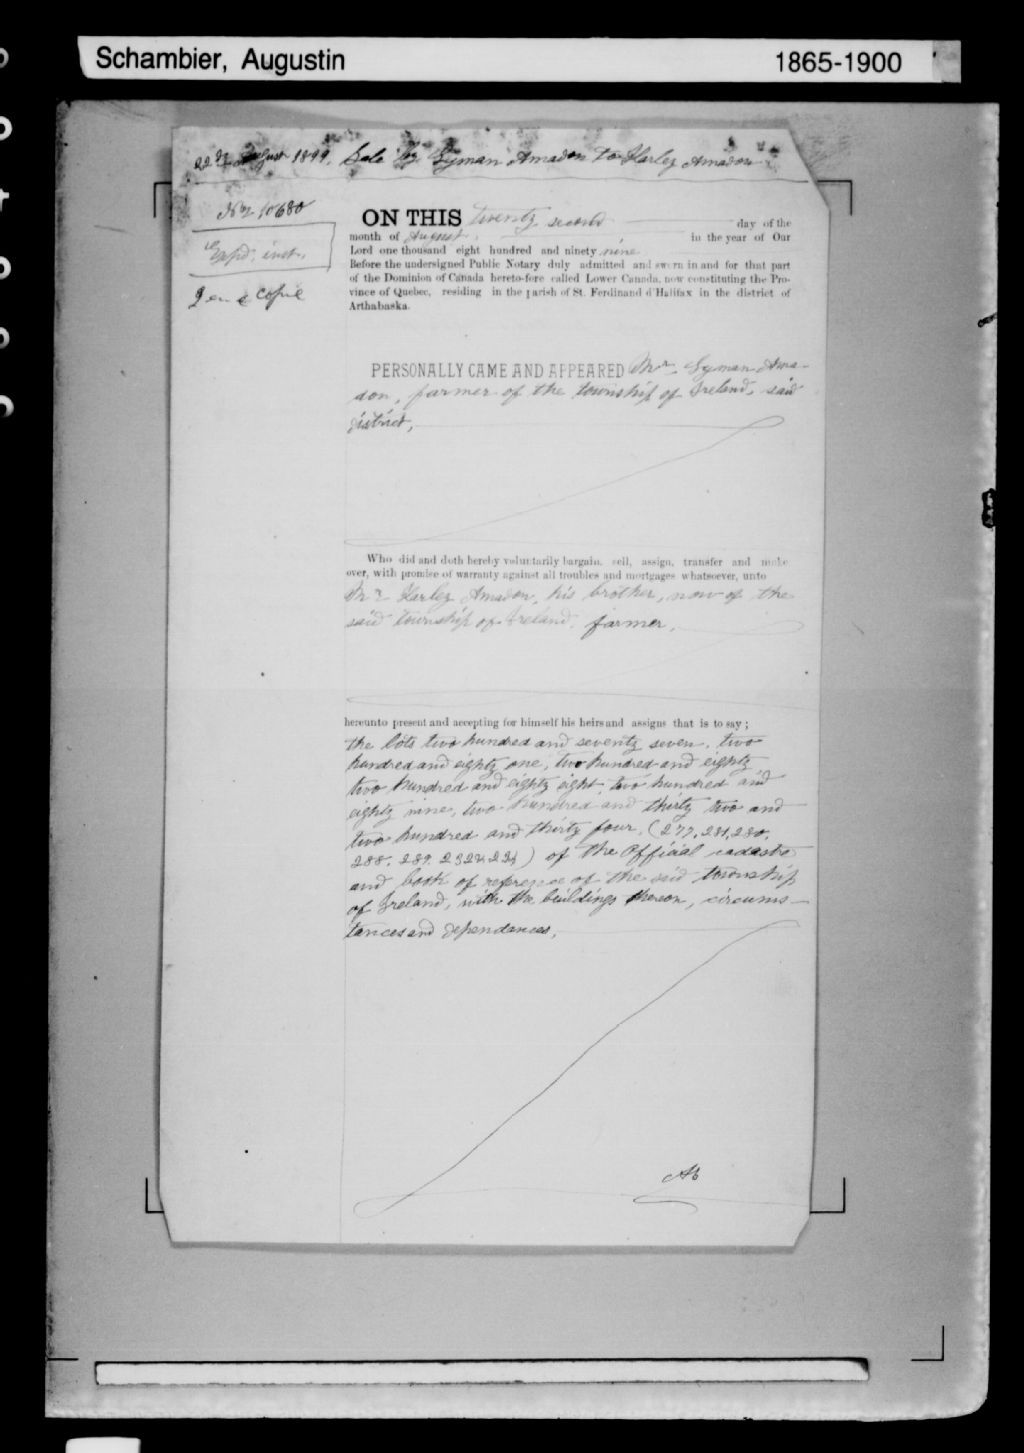 Schambier, Augustin 1865-1900
22d August 1899. Sale by Lyman Amadon to Harley Amadon
No 10680
Expd. inst.
1 en copie
ON THIS twenty second day of the
month of August in the year of Our
Lord one thousand eight hundred and ninety nine
Before the undersigned Public Notary duly admitted and sworn in and for that part
of the Dominion of Canada hereto-fore called Lower Canada, now constituting the Pro-
vince of Quebec, residing in the parish of St. Ferdinand d'Halifax in the district of
Arthabaska.
PERSONALLY CAME AND APPEARED Mr. Lyman Ama-
don, farmer of the township of Ireland, said
district,
Who did and doth hereby voluntarily bargain, sell, assign, transfer and make
over, with promise of warranty against all troubles and mortgages whatsoever, unto
Mr Harley Amadon, his brother, now of the
said township of Ireland, farmer,
hereunto present and accepting for himself his heirs and assigns that is to say;
the lots two hundred and seventy seven, two
hundred and eighty one, two hundred and eighty
two hundred and eighty eight, two hundred and
eighty nine, two hundred and thirty two and
two hundred and thirty four, (277, 281, 280,
288, 289, 232 & 234) of the Official cadastre
and book of reference of the said township
of Ireland, with the buildings thereon, circums-
tances and dependances,
AS